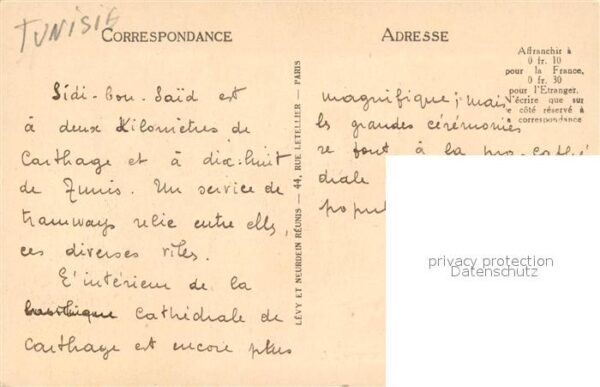 TUNISIE
CORRESPONDANCE
Sidi-bou-Saïd est
à deux kilomètres de
Carthage et à dix-huit
de Tunis. Un service de
tramways relie entre elles,
ces diverses villes.
L'intérieur de la
basilique Cathédrale de
Carthage est encore plus
LÉVY ET NEURDEIN RÉUNIS — 44, RUE LETELLIER — PARIS
ADRESSE
Affranchir à
0 fr. 10
pour la France,
0 fr. 30
pour l'Etranger.
N'écrire que sur
le côté réservé à
la correspondance
magnifique; mais
les grandes cérémonies
se font à la pro-cathé
drale
popul
privacy protection
Datenschutz